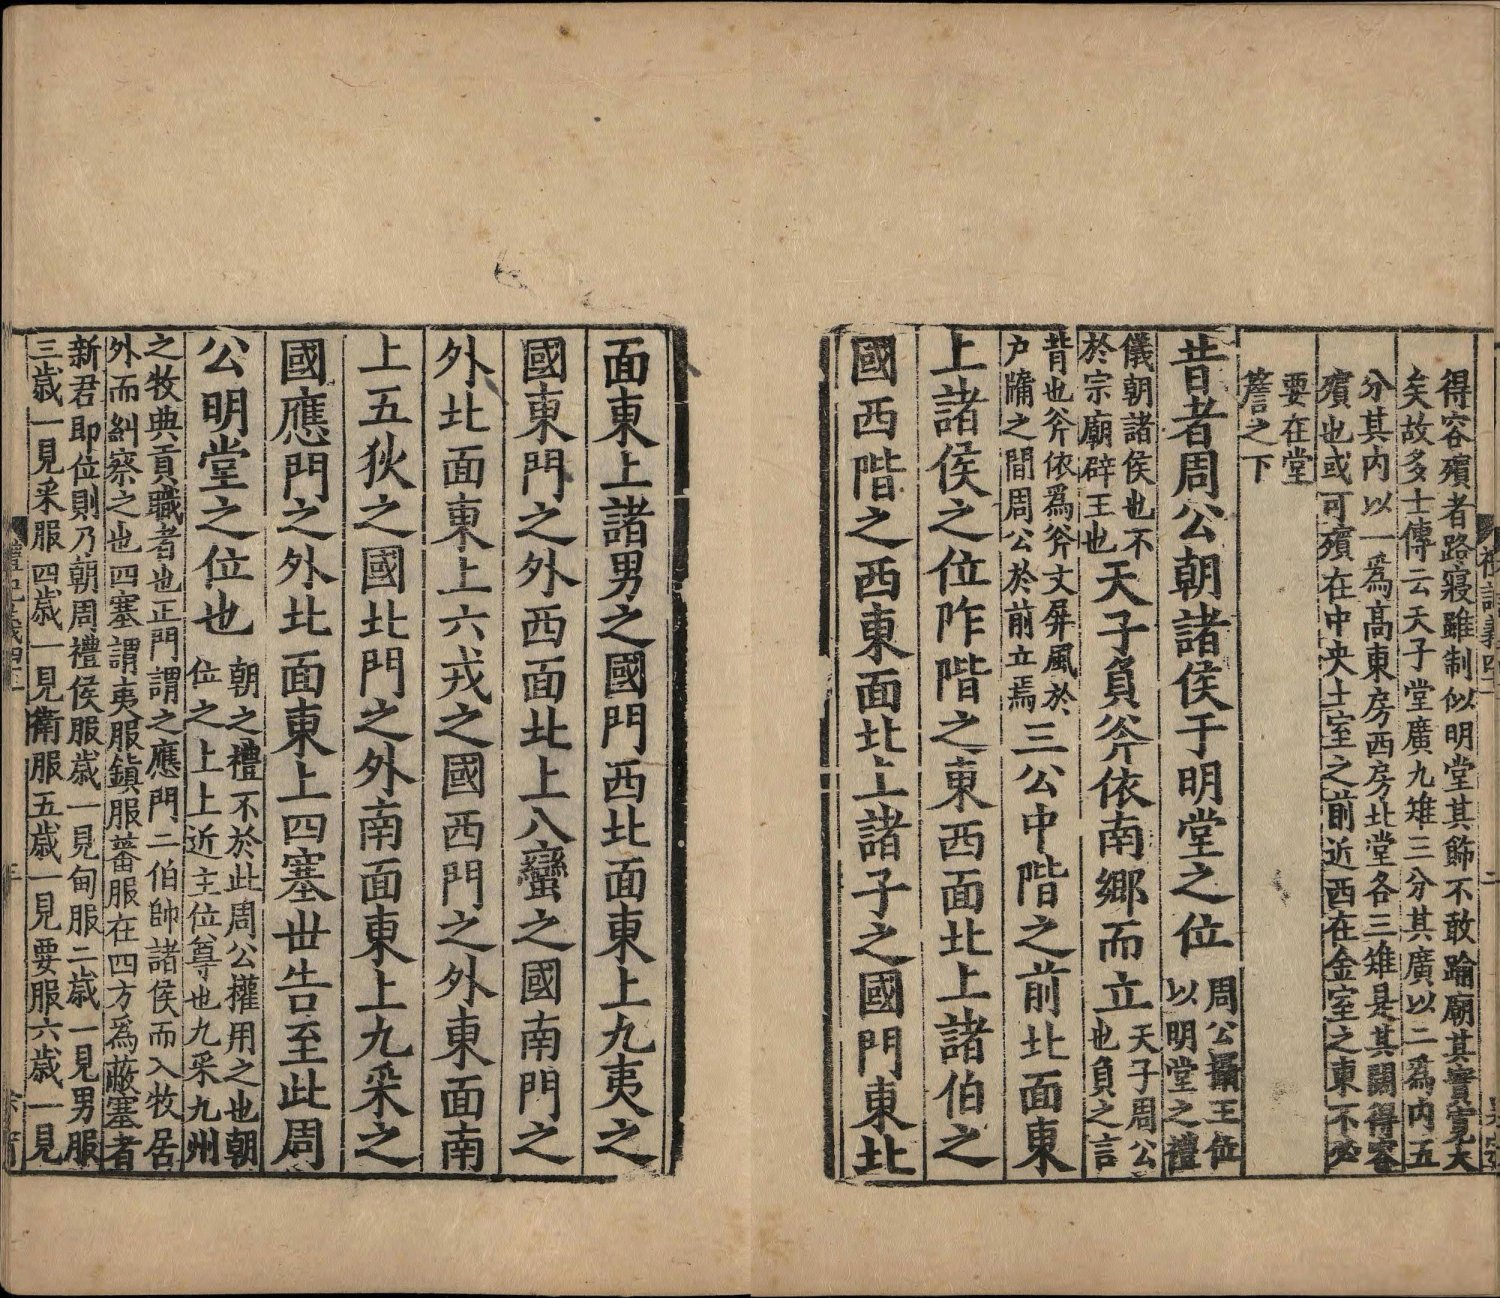 得容殯者路寢雖制似明堂其飾不敢踰廟其實寬大
矣故多士傳云天子堂廣九雉三分其廣以二爲内五
分其内以一爲髙東房西房北堂各三雉是其闊得容
殯也或可殯在中央土室之前近西在金室之東不必
要在堂
簷之下
昔者周公朝諸侯于明堂之位
周公攝王位
以明堂之禮
儀朝諸侯也不
於宗廟辟王也
天子負斧依南鄉而立
天子周公
也負之言
背也斧依爲斧文屏風於
户牖之間周公於前立焉
三公中階之前北面東
上諸侯之位阼階之東西面北上諸伯之
國西階之西東面北上諸子之國門東北
面東上諸男之國門西北面東上九夷之
國東門之外西面北上八蠻之國南門之
外北面東上六戎之國西門之外東面南
上五狄之國北門之外南面東上九采之
國應門之外北面東上四塞丗告至此周
公明堂之位也
朝之禮不於此周公權用之也朝
位之上上近主位尊也九采九州
之牧典貢職者也正門謂之應門二伯帥諸侯而入牧居
外而糾察之也四塞謂夷服鎮服蕃服在四方爲蔽塞者
新君即位則乃朝周禮侯服歲一見甸服二歲一見男服
三歲一見采服四歲一見衛服五歲一見要服六歲一見